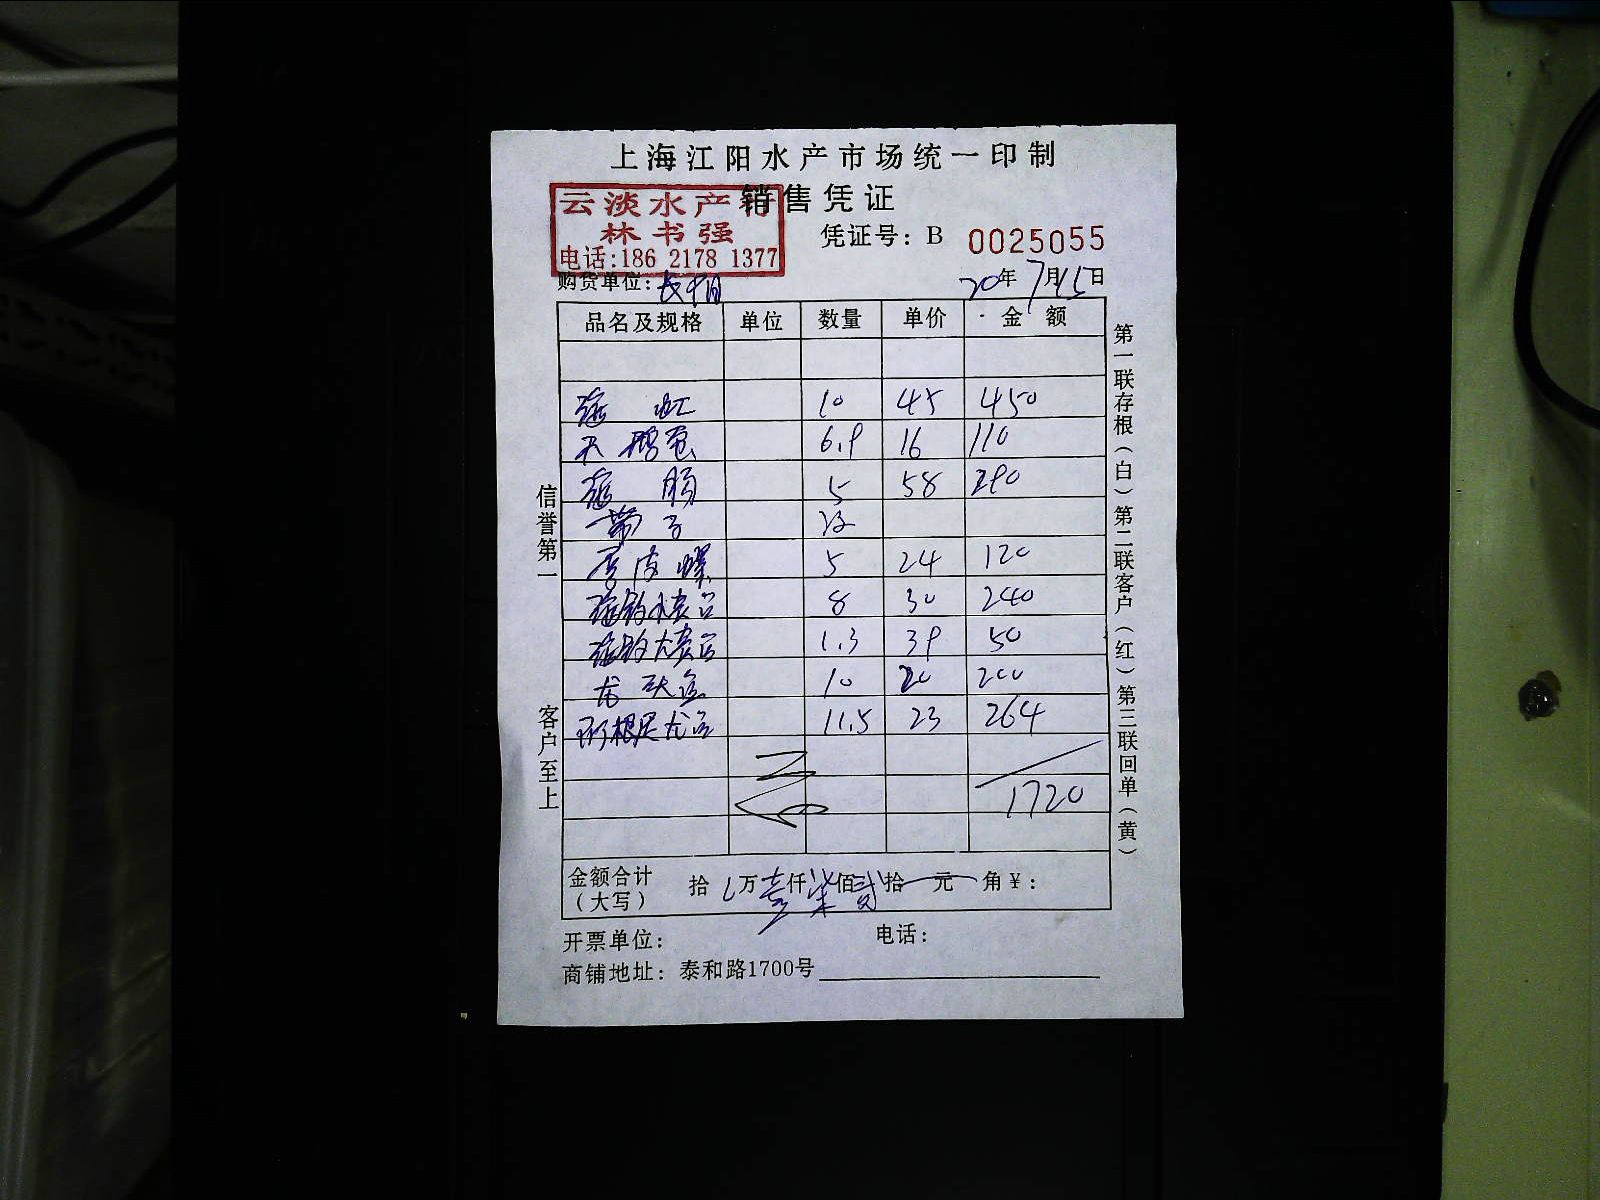 上海江阳水产市场统一印制
销售凭证
云淡水产行
林书强
电话:186 2178 1377
凭证号: B 0025055
购货单位:
20年7月15日
品名及规格 单位 数量 单价 金额
10 45 450
天鹅蛋 6.9 16 110
海肠 5 58 290
带子
5 24 120
8 30 240
1.3 39 50
10 20 200
11.5 23 264
1720
金额合计(大写) 拾 万壹仟柒佰贰拾 元 角¥:
开票单位: 电话:
商铺地址: 泰和路1700号
信誉第一
客户至上
第一联存根(白)第二联客户(红)第三联回单(黄)